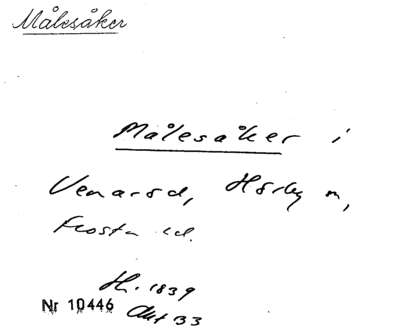 Målesåker
Målesåker i
Venarød, Hörby sn,
Frosta hd.
H. 1839
Nr 10446 Akt 33